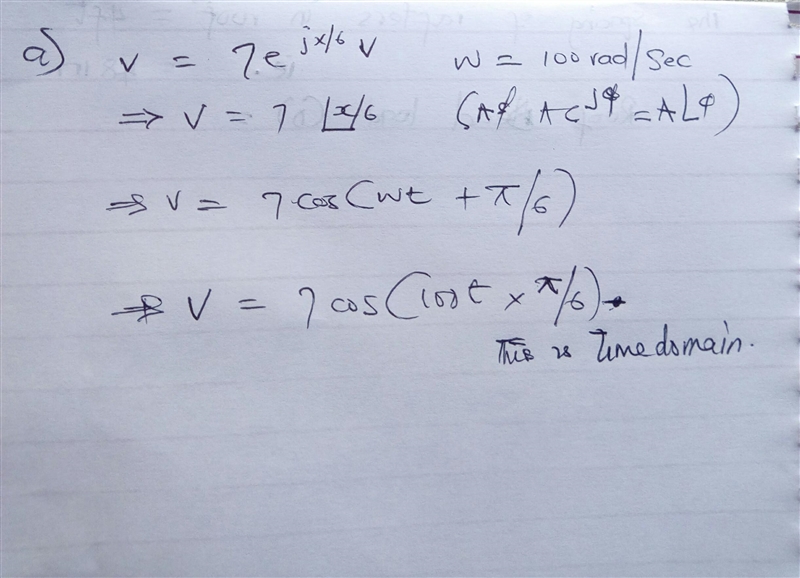 a) V = 7e^{jx/6} V W = 100 rad/Sec
⇒ V = 7 ∠x/6 (A∮ Ae^{jφ} = A∠φ)
⇒ V = 7 cos(wt + π/6)
⇒ V = 7 cos(100t × π/6).
This is Time domain.